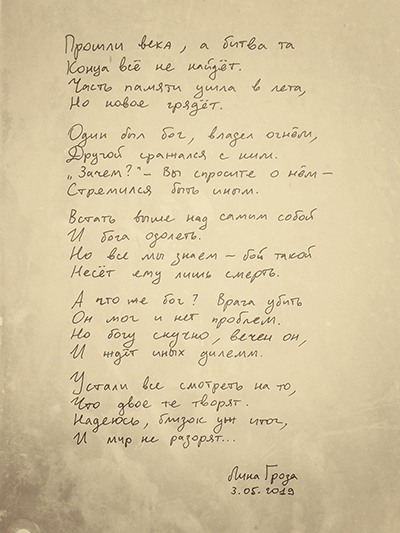 Прошли века, а битва та
Конца всё не найдёт.
Часть памяти ушла в лета,
Но новое грядёт.
Один был бог, владел огнём,
Другой сражался с ним.
„Зачем?" – Вы спросите о нём –
Стремился быть иным.
Встать выше над самим собой
И бога одолеть.
Но все мы знаем – бой такой
Несёт ему лишь смерть.
А что же бог? Врага убить
Он мог и нет проблем.
Но богу скучно, вечен он,
И ждёт иных дилемм.
Устали все смотреть на то,
Что двое те творят.
Надеюсь, близок уж итог,
И мир не разорят...
Лина Гроза
3.05.2019